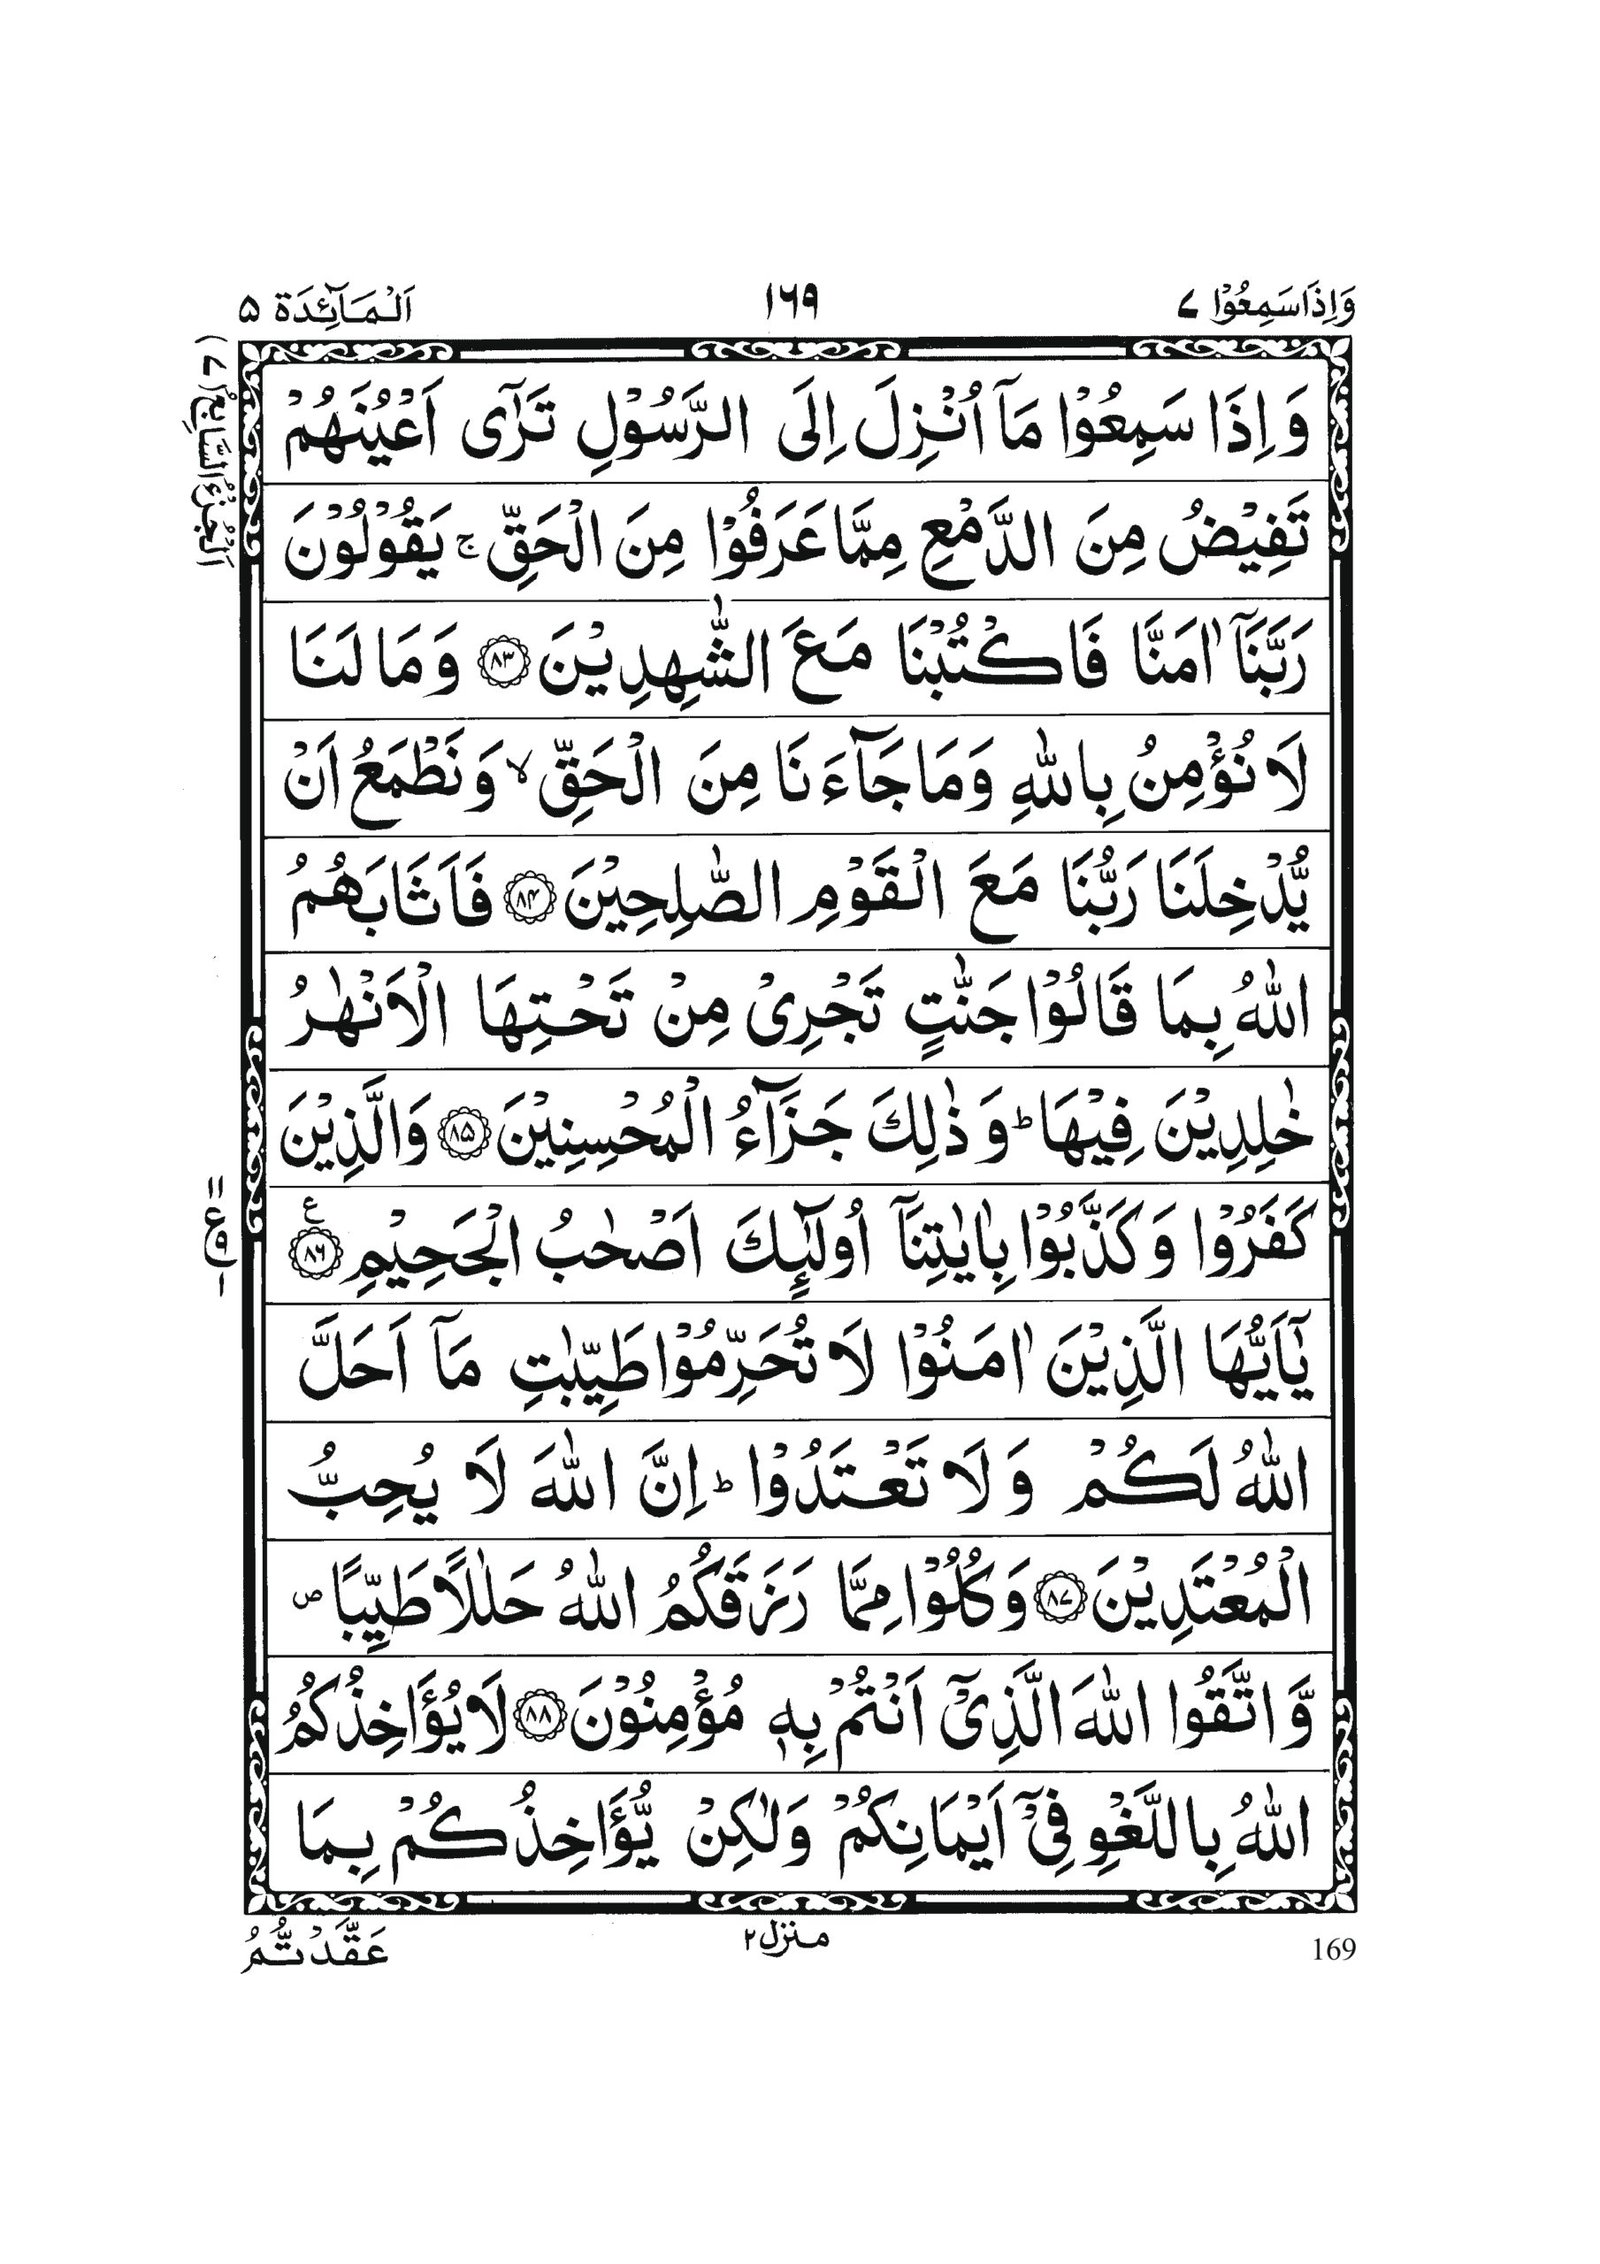 وَاِذَا سَمِعُوْا ۷
۱۶۹
اَلْمَآئِدَة ۵
اَلْجُزْءُ السَّابِعُ (۷)
وَ اِذَا سَمِعُوْا مَآ اُنْزِلَ اِلَى الرَّسُوْلِ تَرٰٓى اَعْيُنَهُمْ
تَفِيْضُ مِنَ الدَّمْعِ مِمَّا عَرَفُوْا مِنَ الْحَقِّ ۚ يَقُوْلُوْنَ
رَبَّنَآ اٰمَنَّا فَاكْتُبْنَا مَعَ الشّٰهِدِيْنَ ﴿۸۳﴾ وَمَا لَنَا
لَا نُؤْمِنُ بِاللّٰهِ وَمَا جَآءَنَا مِنَ الْحَقِّ ۙ وَنَطْمَعُ اَنْ
يُّدْخِلَنَا رَبُّنَا مَعَ الْقَوْمِ الصّٰلِحِيْنَ ﴿۸۴﴾ فَاَثَابَهُمُ
اللّٰهُ بِمَا قَالُوْا جَنّٰتٍ تَجْرِىْ مِنْ تَحْتِهَا الْاَنْهٰرُ
خٰلِدِيْنَ فِيْهَا ؕ وَ ذٰلِكَ جَزَآءُ الْمُحْسِنِيْنَ ﴿۸۵﴾ وَالَّذِيْنَ
كَفَرُوْا وَكَذَّبُوْا بِاٰيٰتِنَآ اُولٰٓئِكَ اَصْحٰبُ الْجَحِيْمِ ﴿۸۶﴾ ع
يٰٓاَيُّهَا الَّذِيْنَ اٰمَنُوْا لَا تُحَرِّمُوْا طَيِّبٰتِ مَآ اَحَلَّ
اللّٰهُ لَكُمْ وَلَا تَعْتَدُوْا ؕ اِنَّ اللّٰهَ لَا يُحِبُّ
الْمُعْتَدِيْنَ ﴿۸۷﴾ وَكُلُوْا مِمَّا رَزَقَكُمُ اللّٰهُ حَلٰلًا طَيِّبًا ۖ
وَّاتَّقُوا اللّٰهَ الَّذِىْۤ اَنْتُمْ بِهٖ مُؤْمِنُوْنَ ﴿۸۸﴾ لَا يُؤَاخِذُكُمُ
اللّٰهُ بِاللَّغْوِ فِىْۤ اَيْمَانِكُمْ وَلٰكِنْ يُّؤَاخِذُكُمْ بِمَا
عَقَّدْتُّمُ
منزل ۲
169